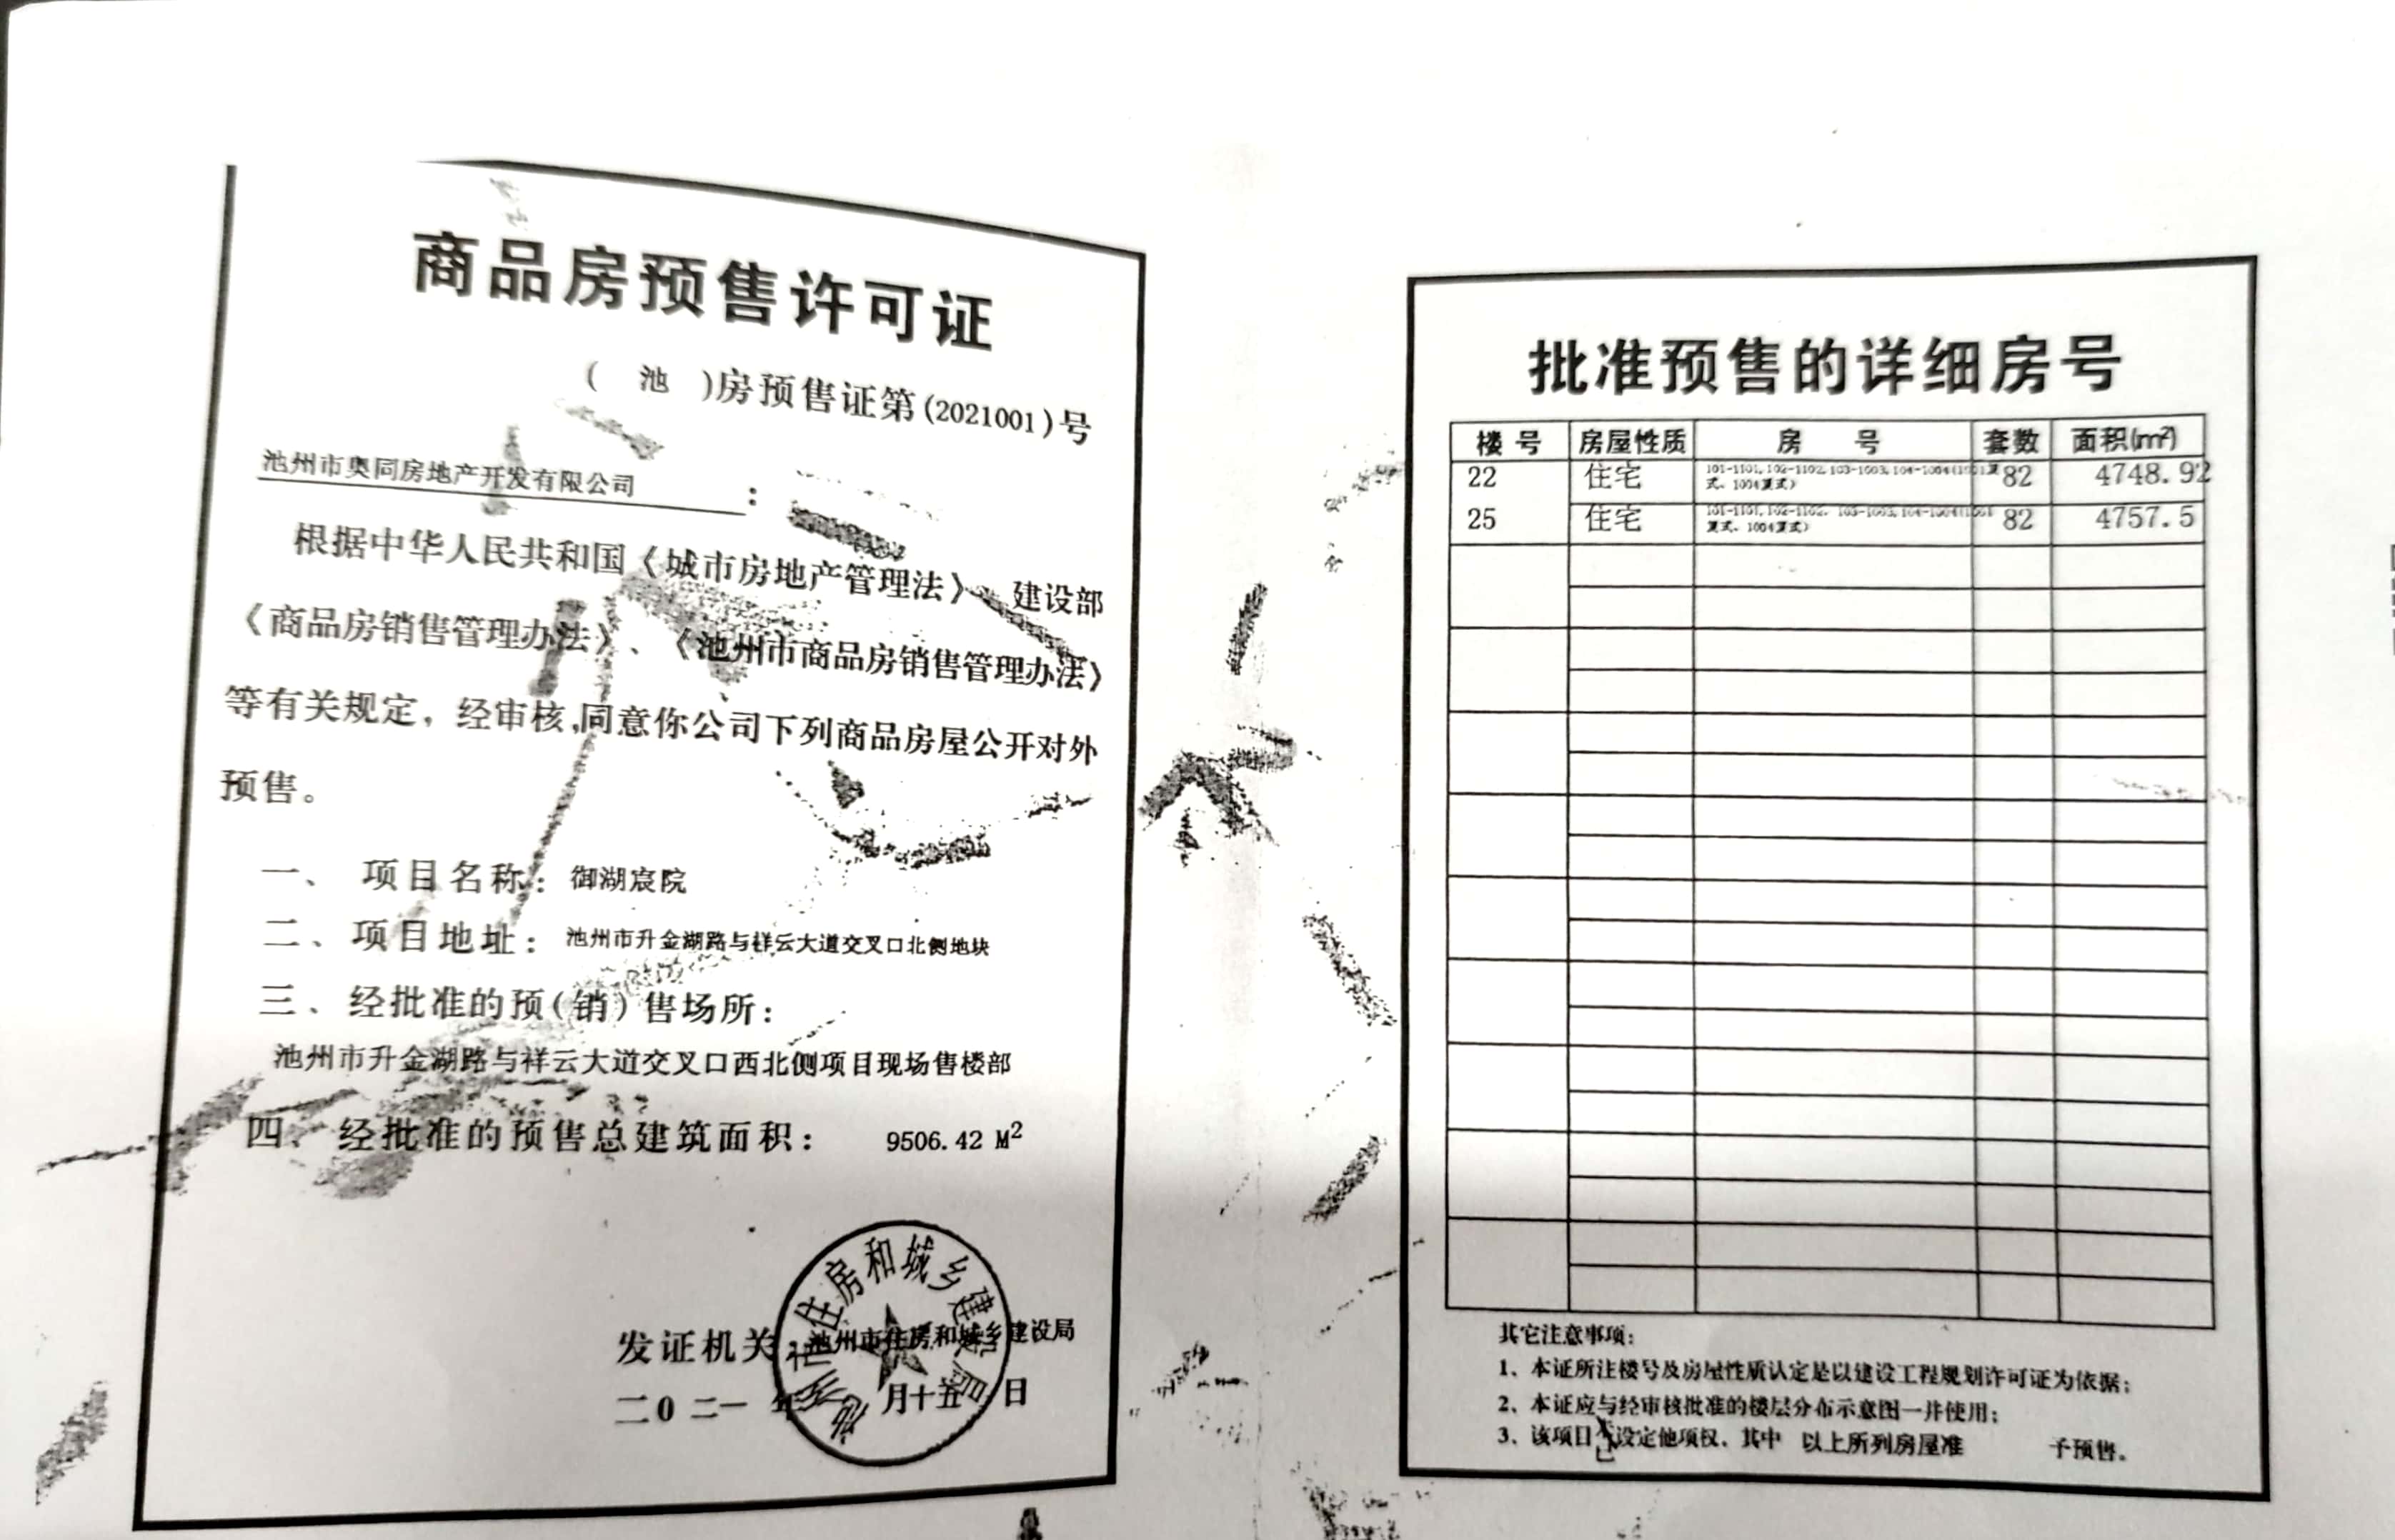 商品房预售许可证
( 池 )房预售证第(2021001)号
池州市奥同房地产开发有限公司：
根据中华人民共和国《城市房地产管理法》、建设部
《商品房销售管理办法》、《池州市商品房销售管理办法》
等有关规定，经审核,同意你公司下列商品房屋公开对外
预售。
一、 项目名称：御湖宸院
二、项目地址：池州市升金湖路与祥云大道交叉口北侧地块
三、经批准的预(销)售场所：
池州市升金湖路与祥云大道交叉口西北侧项目现场售楼部
四、经批准的预售总建筑面积： 9506.42 M²
发证机关：池州市住房和城乡建设局
二0二一 年 月十五 日
池州市住房和城乡建设局
批准预售的详细房号
楼号 房屋性质 房 号 套数 面积(m²)
22 住宅 101-1101,102-1102,103-1003,104-1004(1001复 82 4748.92
式、1004复式)
25 住宅 101-1101,102-1102,103-1003,104-1004(1001 82 4757.5
复式、1004复式)
其它注意事项：
1、本证所注楼号及房屋性质认定是以建设工程规划许可证为依据；
2、本证应与经审核批准的楼层分布示意图一并使用；
3、该项目 设定他项权，其中 以上所列房屋准 予预售。